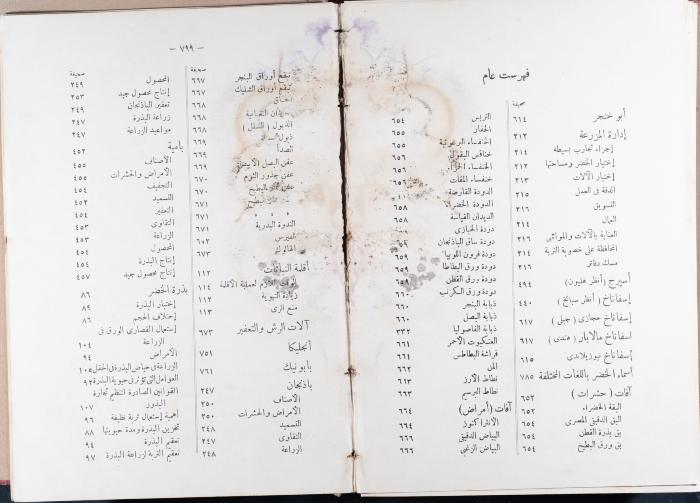 فهرست عام
صحيفة
أبو خنجر ٦١٤
إدارة المزرعة ٢١٢
إجراء تجارب بسيطه ٢١٤
إختيار الخضر ومساحتها ٢١٢
إختيار الآلات ٢١٣
الدقة فى العمل ٢١٥
التسويق ٢١٦
العمال ٢١٤
العناية بالآلات والمواشى ٢١٦
المحافظة على خصوبة التربة ٢١٤
مسك دفاتر ٢١٦
أسبرج (أنظر هليون) ٤٩٤
إسفاناخ (أنظر سبانخ) ٤٤٠
إسفاناخ حجازى (جبلى) ٦١٧
اسفاناخ مالابار (هندى) ٦١٧
إسفاناخ نيوزيلاندى ٦١٥
أسماء الخضر باللغات المختلفة ٧٨٥
آفات (حشرات) ٦٥٢
البقة الخضراء ٦٥٢
البق الدقيقى المصرى ٦٥٤
بق بذرة القطن ٦٥٤
بق ورق البطيخ ٦٥٤
التربس ٦٥٤
الحفار ٦٥٥
الخنفساء البرغوثية ٦٥٥
خنافس البقول ٦٥٦
الخنفساء ٦٥٦
خنفساء المقات ٦٥٦
الدودة القارضة
الدودة الخضراء ٦٥٨
الديدان القياسة ٦٥٨
دودة الخبازى
دودة ساق الباذنجان ٦٥٩
دودة قرون اللوبيا ٦٥٩
دودة ورق البطاطا ٦٥٩
دودة ورق القطن ٦٥٩
دودة ورق الكرنب ٦٦٠
ذبابة البنجر ٦٦٠
ذبابة البصل ٦٦٠
ذبابة الفاصوليا ٣٣٢
العنكبوت الأحمر ٦٦١
فراشة البطاطس ٦٦١
المن ٦٦٢
نطاط الأرز ٦٦٣
نطاط البرسم ٦٦٣
آفات (أمراض) ٦٦٤
الانتراكنوز ٦٦٤
البياض الدقيقى ٦٦٦
البياض الزغبى ٦٦٦
— ٧٩٩ —
صحيفة
تبقع أوراق البنجر ٦٦٧
تبقع أوراق الشليك ٦٦٧
٦٦٨
الثعبانية ٦٦٨
الذبول (الشلل) ٦٦٨
ذبول ٦٦٩
الصدأ ٦٦٩
عفن البصل ٦٦٩
عفن جذور الثوم ٦٧٠
البطيخ ٦٧٠
البطيخ ٦٧١
٦٧١
الندوة البدرية ٦٧١
الفيرس ٦٧٢
الهالوك ٦٧٣
أقلمة النباتات ١١٢
الوقت اللازم لعملية الأقلمة ١١٤
زيادة التهوية ١١٢
منع الرى ١١٣
آلات الرش والتعفير ٦٧٣
أنجليكا ٧٥١
بابونيك ٧٦١
باذنجان ٢٤٧
الأصناف ٢٥٠
الأمراض والحشرات ٢٥٠
التسميد ٢٤٨
التقاوى ٢٤٧
الزراعة ٢٤٨
صحيفة
المحصول ٢٤٩
إنتاج محصول جيد ٢٥٣
تعفير الباذنجان ٢٤٩
زراعة البذرة ٢٤٧
مواعيد الزراعة ٢٤٧
بامية ٤٥٢
الأصناف ٤٥٥
الأمراض والحشرات ٤٥٥
التجفيف ٤٥٤
التسميد ٤٥٤
التعفير ٤٥٤
التقاوى ٤٥٣
الزراعة ٤٥٣
المحصول ٤٥٤
إنتاج البذرة ٤٥٤
إنتاج محصول جيد ٤٥٧
بذرة الخضر ٨٦
إختبار البذرة ٨٩
إختلاف الحجم ٨٦
إستعمال القصارى الورق فى
الزراعة ١٠٤
الأمراض ٩٤
الزراعة فى حياض البذرة فى الحقل ١٠٥
العوامل التى تؤثر فى حيوية البذرة ٩٢
القوانين الصادرة لتنظيم تجارة
البذور ١٠٧
أهمية إستعمال تربة نظيفة ٩٦
تخزين البذرة ومدة حيويتها ٨٨
تعقيم البذرة ٩٤
تعقيم التربة لزراعة البذرة ٩٧